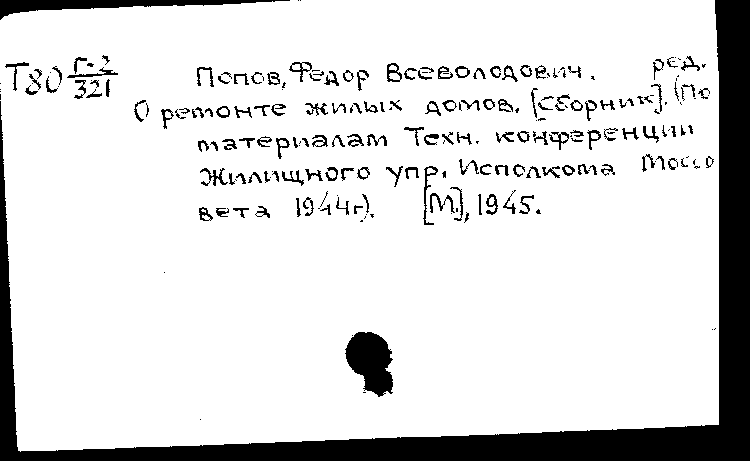 Т80 Г-2/321 Попов, Федор Всеволодович. ред.
О ремонте жилых домов. [Сборник]. (По
материалам Техн. конференции
Жилищного упр. Исполкома Моссо
вета 1944г). [М.], 1945.